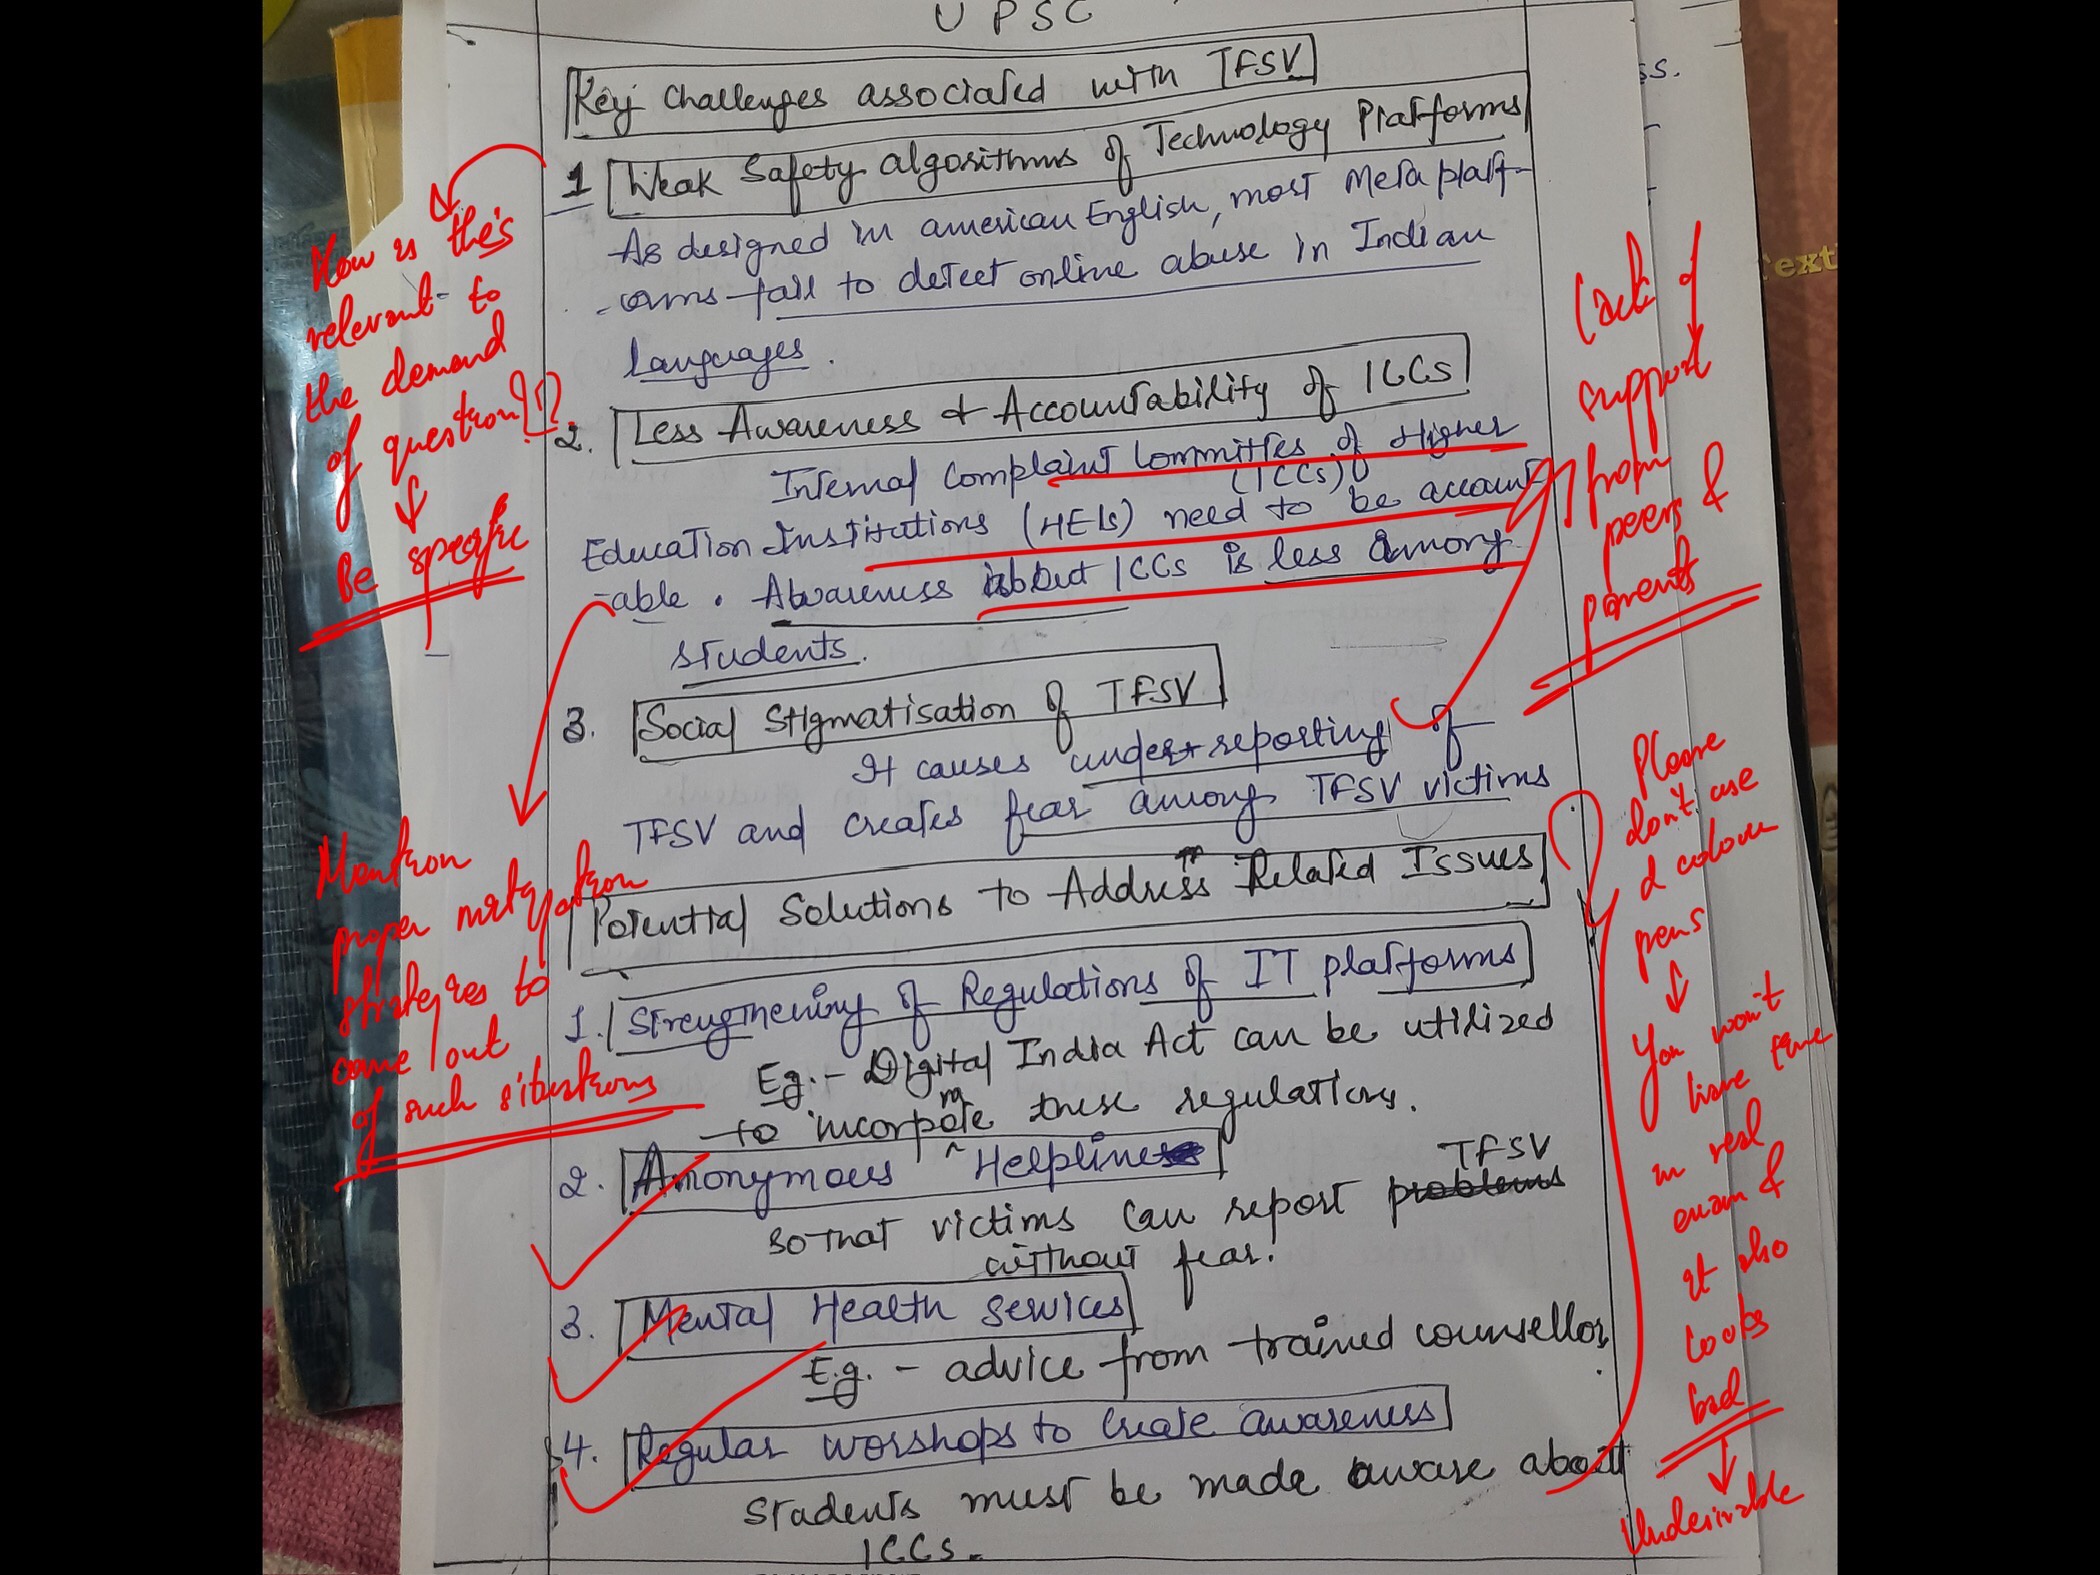 UPSC
Key Challenges associated with TFSV
1 Weak Safety algorithms of Technology Platforms
As designed in american English, most Meta platf-
-orms fail to detect online abuse in Indian
languages.
2. Less Awareness & Accountability of ICCs
Internal Complaint Committes of Higher
(ICCs)
Education Institutions (HEIs) need to be account
-able. Awareness about ICCs is less among
students.
3. Social Stigmatisation of TFSV
It causes under-reporting of
TFSV and creates fear among TFSV victims
Potential Solutions to Address Related Issues
1. Strengthening of Regulations of IT platforms
Eg.- Digital India Act can be utilized
to incorporate these regulations.
2. Anonymous Helpline
TFSV
so that victims can report problems
without fear.
3. Mental Health Services
E.g. - advice from trained counsellor
4. Regular Worshops to Create awareness
Students must be made aware about
ICCs.
How is this
relevant to
the demand
of question??
Be specific
Mention
proper mitigation
strategies to
come out
of such situations
Lack of
support
from
peers &
parents
Please
don't use
2 colour
pens
You won't
have time
in real
exam &
it also
looks
bad
Undesirable
ss.
ext